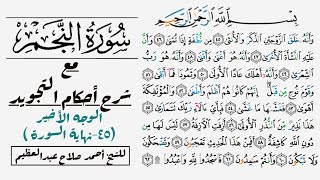 بِسْمِ اللَّهِ الرَّحْمَٰنِ الرَّحِيمِ
وَأَنَّهُ خَلَقَ الزَّوْجَيْنِ الذَّكَرَ وَالْأُنثَىٰ ٤٥ مِن نُّطْفَةٍ إِذَا تُمْنَىٰ ٤٦ وَأَنَّ
عَلَيْهِ النَّشْأَةَ الْأُخْرَىٰ ٤٧ وَأَنَّهُ هُوَ أَغْنَىٰ وَأَقْنَىٰ ٤٨ وَأَنَّهُ هُوَ رَبُّ
الشِّعْرَىٰ ٤٩ وَأَنَّهُ أَهْلَكَ عَادًا الْأُولَىٰ ٥٠ وَثَمُودَا فَمَا أَبْقَىٰ ٥١
وَقَوْمَ نُوحٍ مِّن قَبْلُ إِنَّهُمْ كَانُوا هُمْ أَظْلَمَ وَأَطْغَىٰ ٥٢ وَالْمُؤْتَفِكَةَ
أَهْوَىٰ ٥٣ فَغَشَّاهَا مَا غَشَّىٰ ٥٤ فَبِأَيِّ آلَاءِ رَبِّكَ تَتَمَارَىٰ ٥٥
هَٰذَا نَذِيرٌ مِّنَ النُّذُرِ الْأُولَىٰ ٥٦ أَزِفَتِ الْآزِفَةُ ٥٧ لَيْسَ لَهَا
مِن دُونِ اللَّهِ كَاشِفَةٌ ٥٨ أَفَمِنْ هَٰذَا الْحَدِيثِ تَعْجَبُونَ ٥٩ وَتَضْحَكُونَ
وَلَا تَبْكُونَ ٦٠ وَأَنتُمْ سَامِدُونَ ٦١ فَاسْجُدُوا لِلَّهِ وَاعْبُدُوا ۩ ٦٢
سُورَةُ النَّجْمِ
مع
شرح أحكام التجويد
الوجه الأخير
(٤٥-نهاية السورة)
للشيخ أحمد صلاح عبدالعظيم